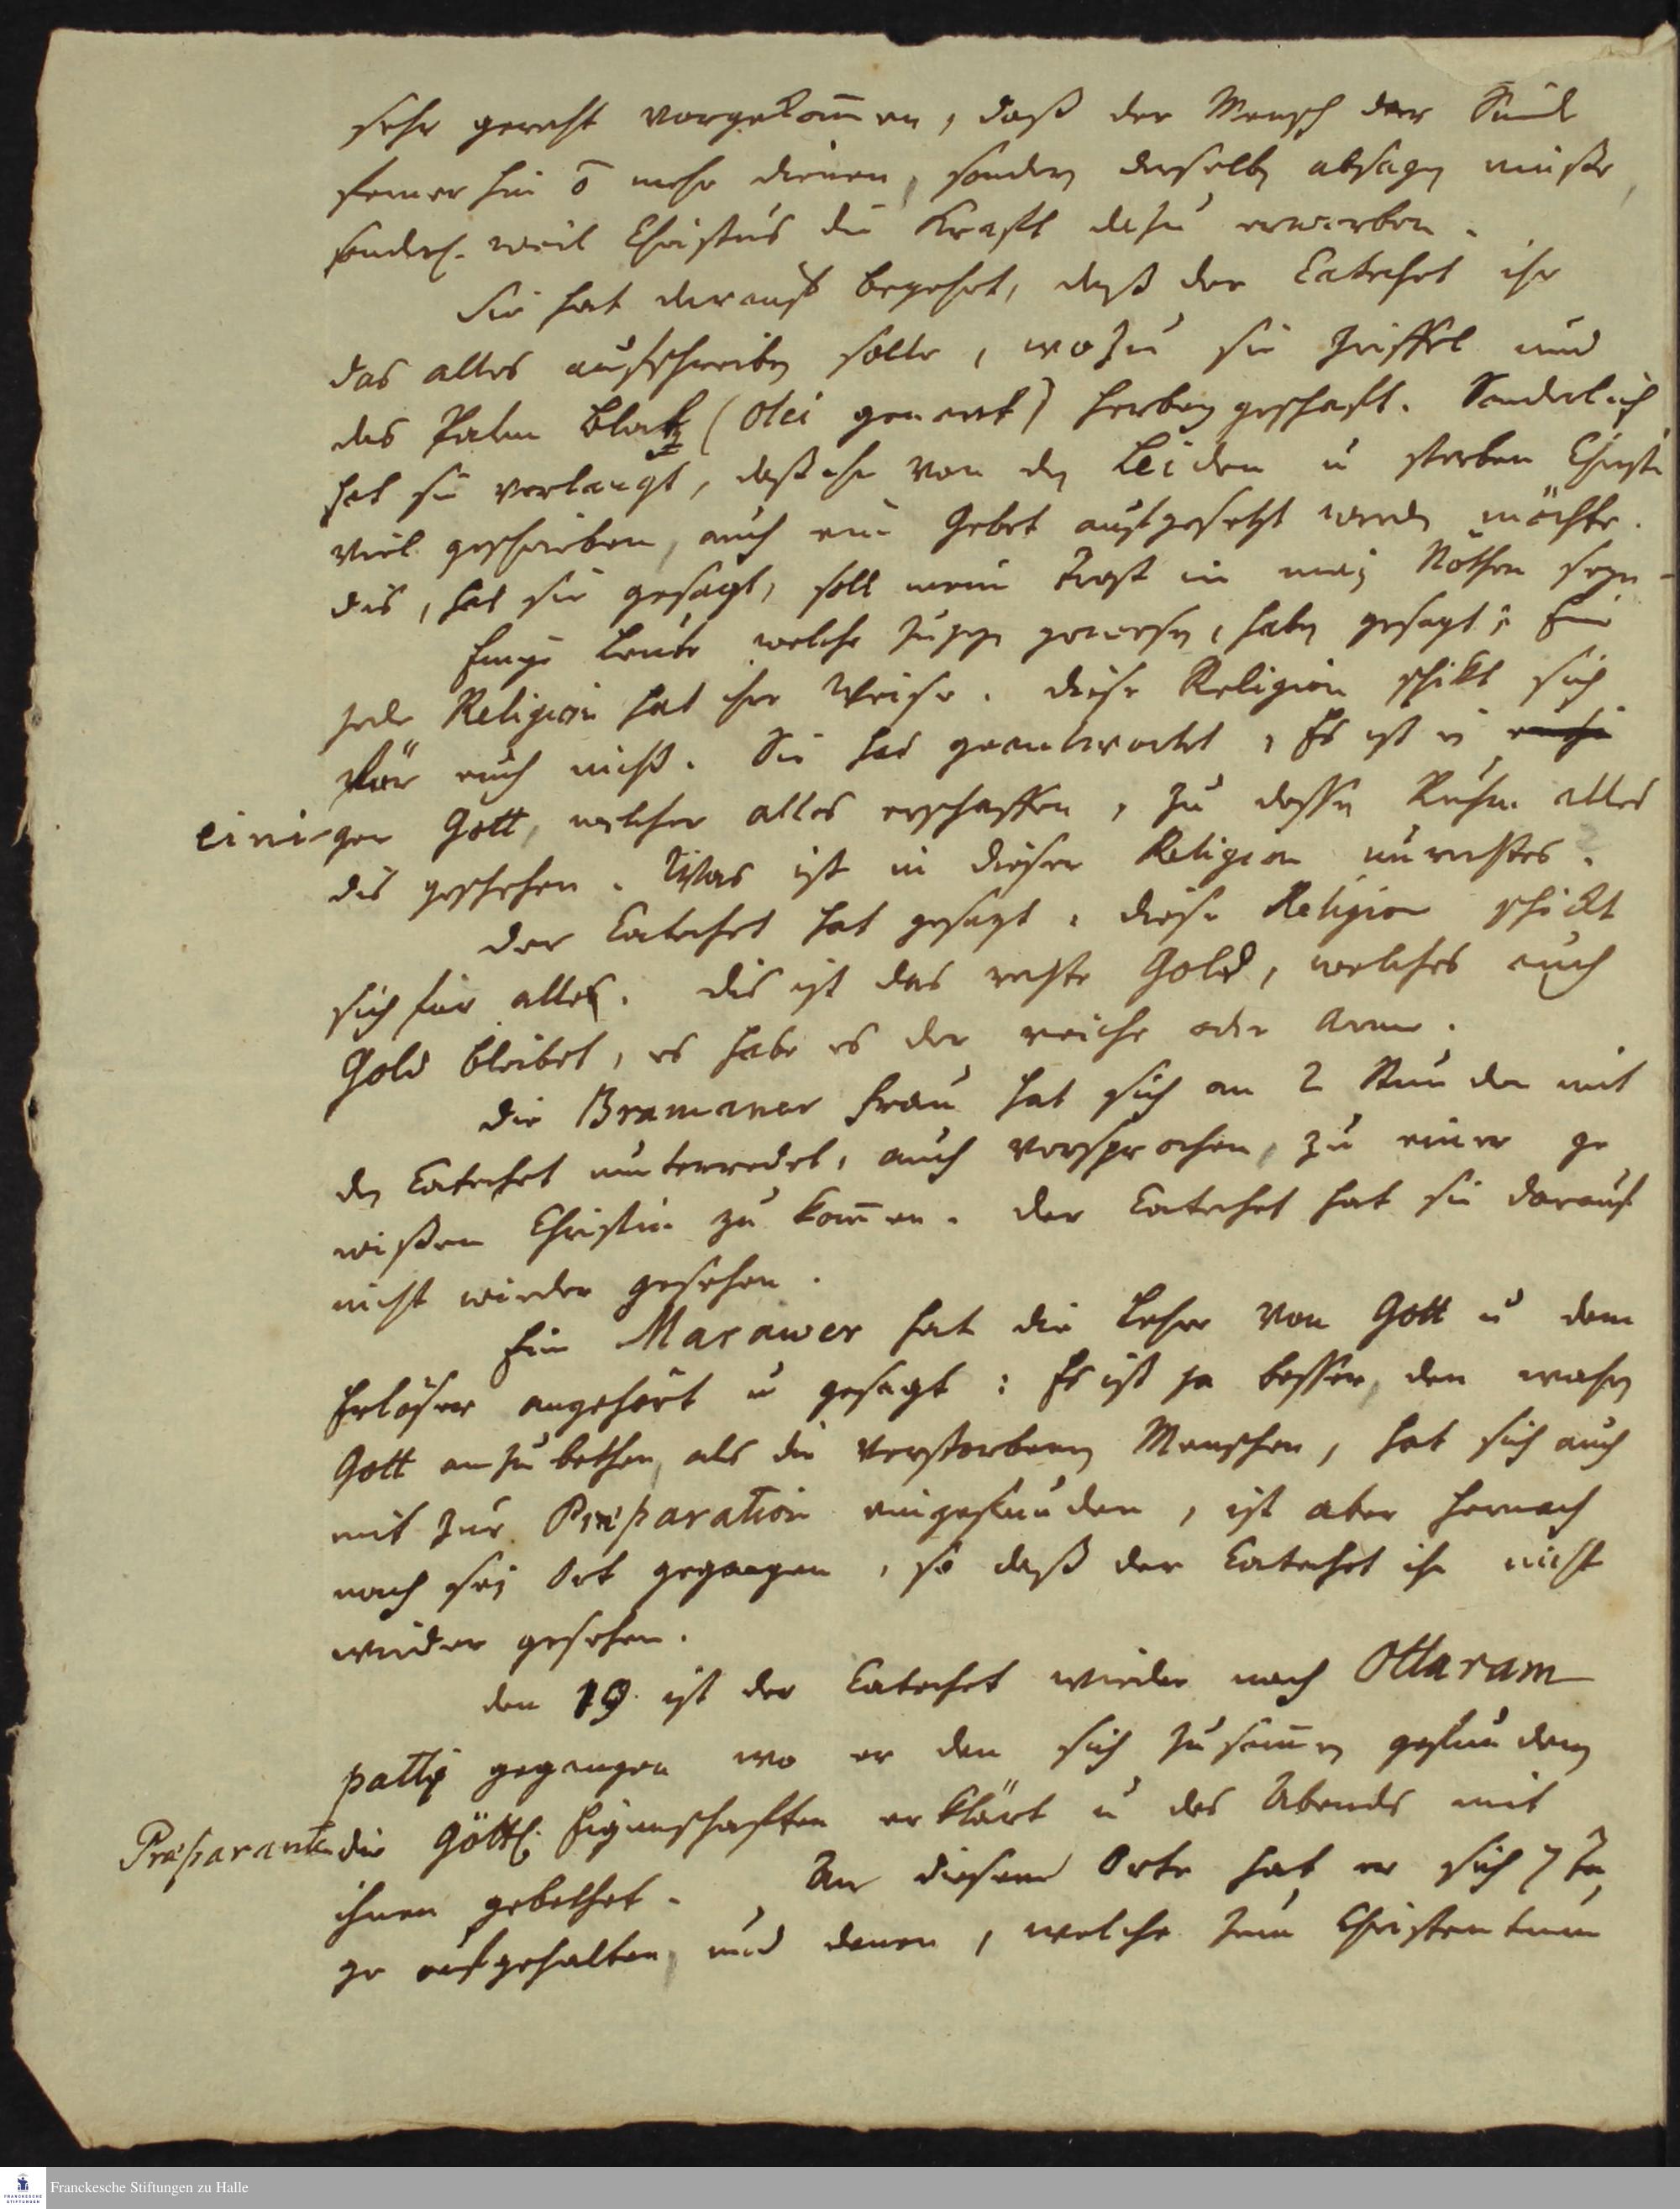 sehr gerecht vorgekom̄en, daß der Mensch der Sünde
ferner hin ō mehr dienen, sondern derselben absagen müßte,
sonderl. weil Christus die Kraft dazu erworben.
Sie hat darauf begehrt, daß der Catechet ihr
das alles aufschreiben solte, wozu sie Griffel und
das Palm Blatt (Olei genant) herbey geschaft. Sonderlich
hat sie verlangt, daß ihr von dem Leiden u sterben Christi
viel geschrieben, auch ein Gebet aufgesetzt werden möchte.
dis, hat sie gesagt, soll mein Trost in meinen Nöthen seyn.
Einige Leute welche zugegen gewesen, haben gesagt: Eine
jede Religion hat ihre Weise. diese Religion schikt sich
für euch nicht. Sie hat geantwortet, Es ist ein
einiger Gott, welcher alles erschaffen, zu dessen Ruhm alles
dis geschehen. Was ist in dieser Religion unrechtes?
Der Catechet hat gesagt: diese Religion schickt
sich für alle. dis ist das rechte Gold, welches auch
Gold bleibet, es habe es der reiche oder Arme.
Die Bramaner Frau hat sich an 2 Stunden mit
dem Catechet unterredet, auch versprochen, zu einer ge
wißen Christin zu kom̄en. Der Catechet hat sie darauf
nicht wieder gesehen.
Ein Marawer hat die Lehre von Gott u dem
Erlöser angehört u gesagt: Es ist ja besser, den wahren
Gott anzubethen, als die verstorbenen Menschen, hat sich auch
mit zur Præparation eingefunden, ist aber hernach
nach seinem Ort gegangen, so daß der Catechet ihn nicht
wieder gesehen.
Den 19. ist der Catechet wieder nach Ottaram
patti gegangen wo er den sich zusam̄en gefundenen
Præparanten die Göttl. Eigenschaften erklärt u des Abends mit
ihnen gebethet. An diesem Orte hat er sich 7 Ta
ge aufgehalten, und denen, welche zum Christentum
Franckesche Stiftungen zu Halle